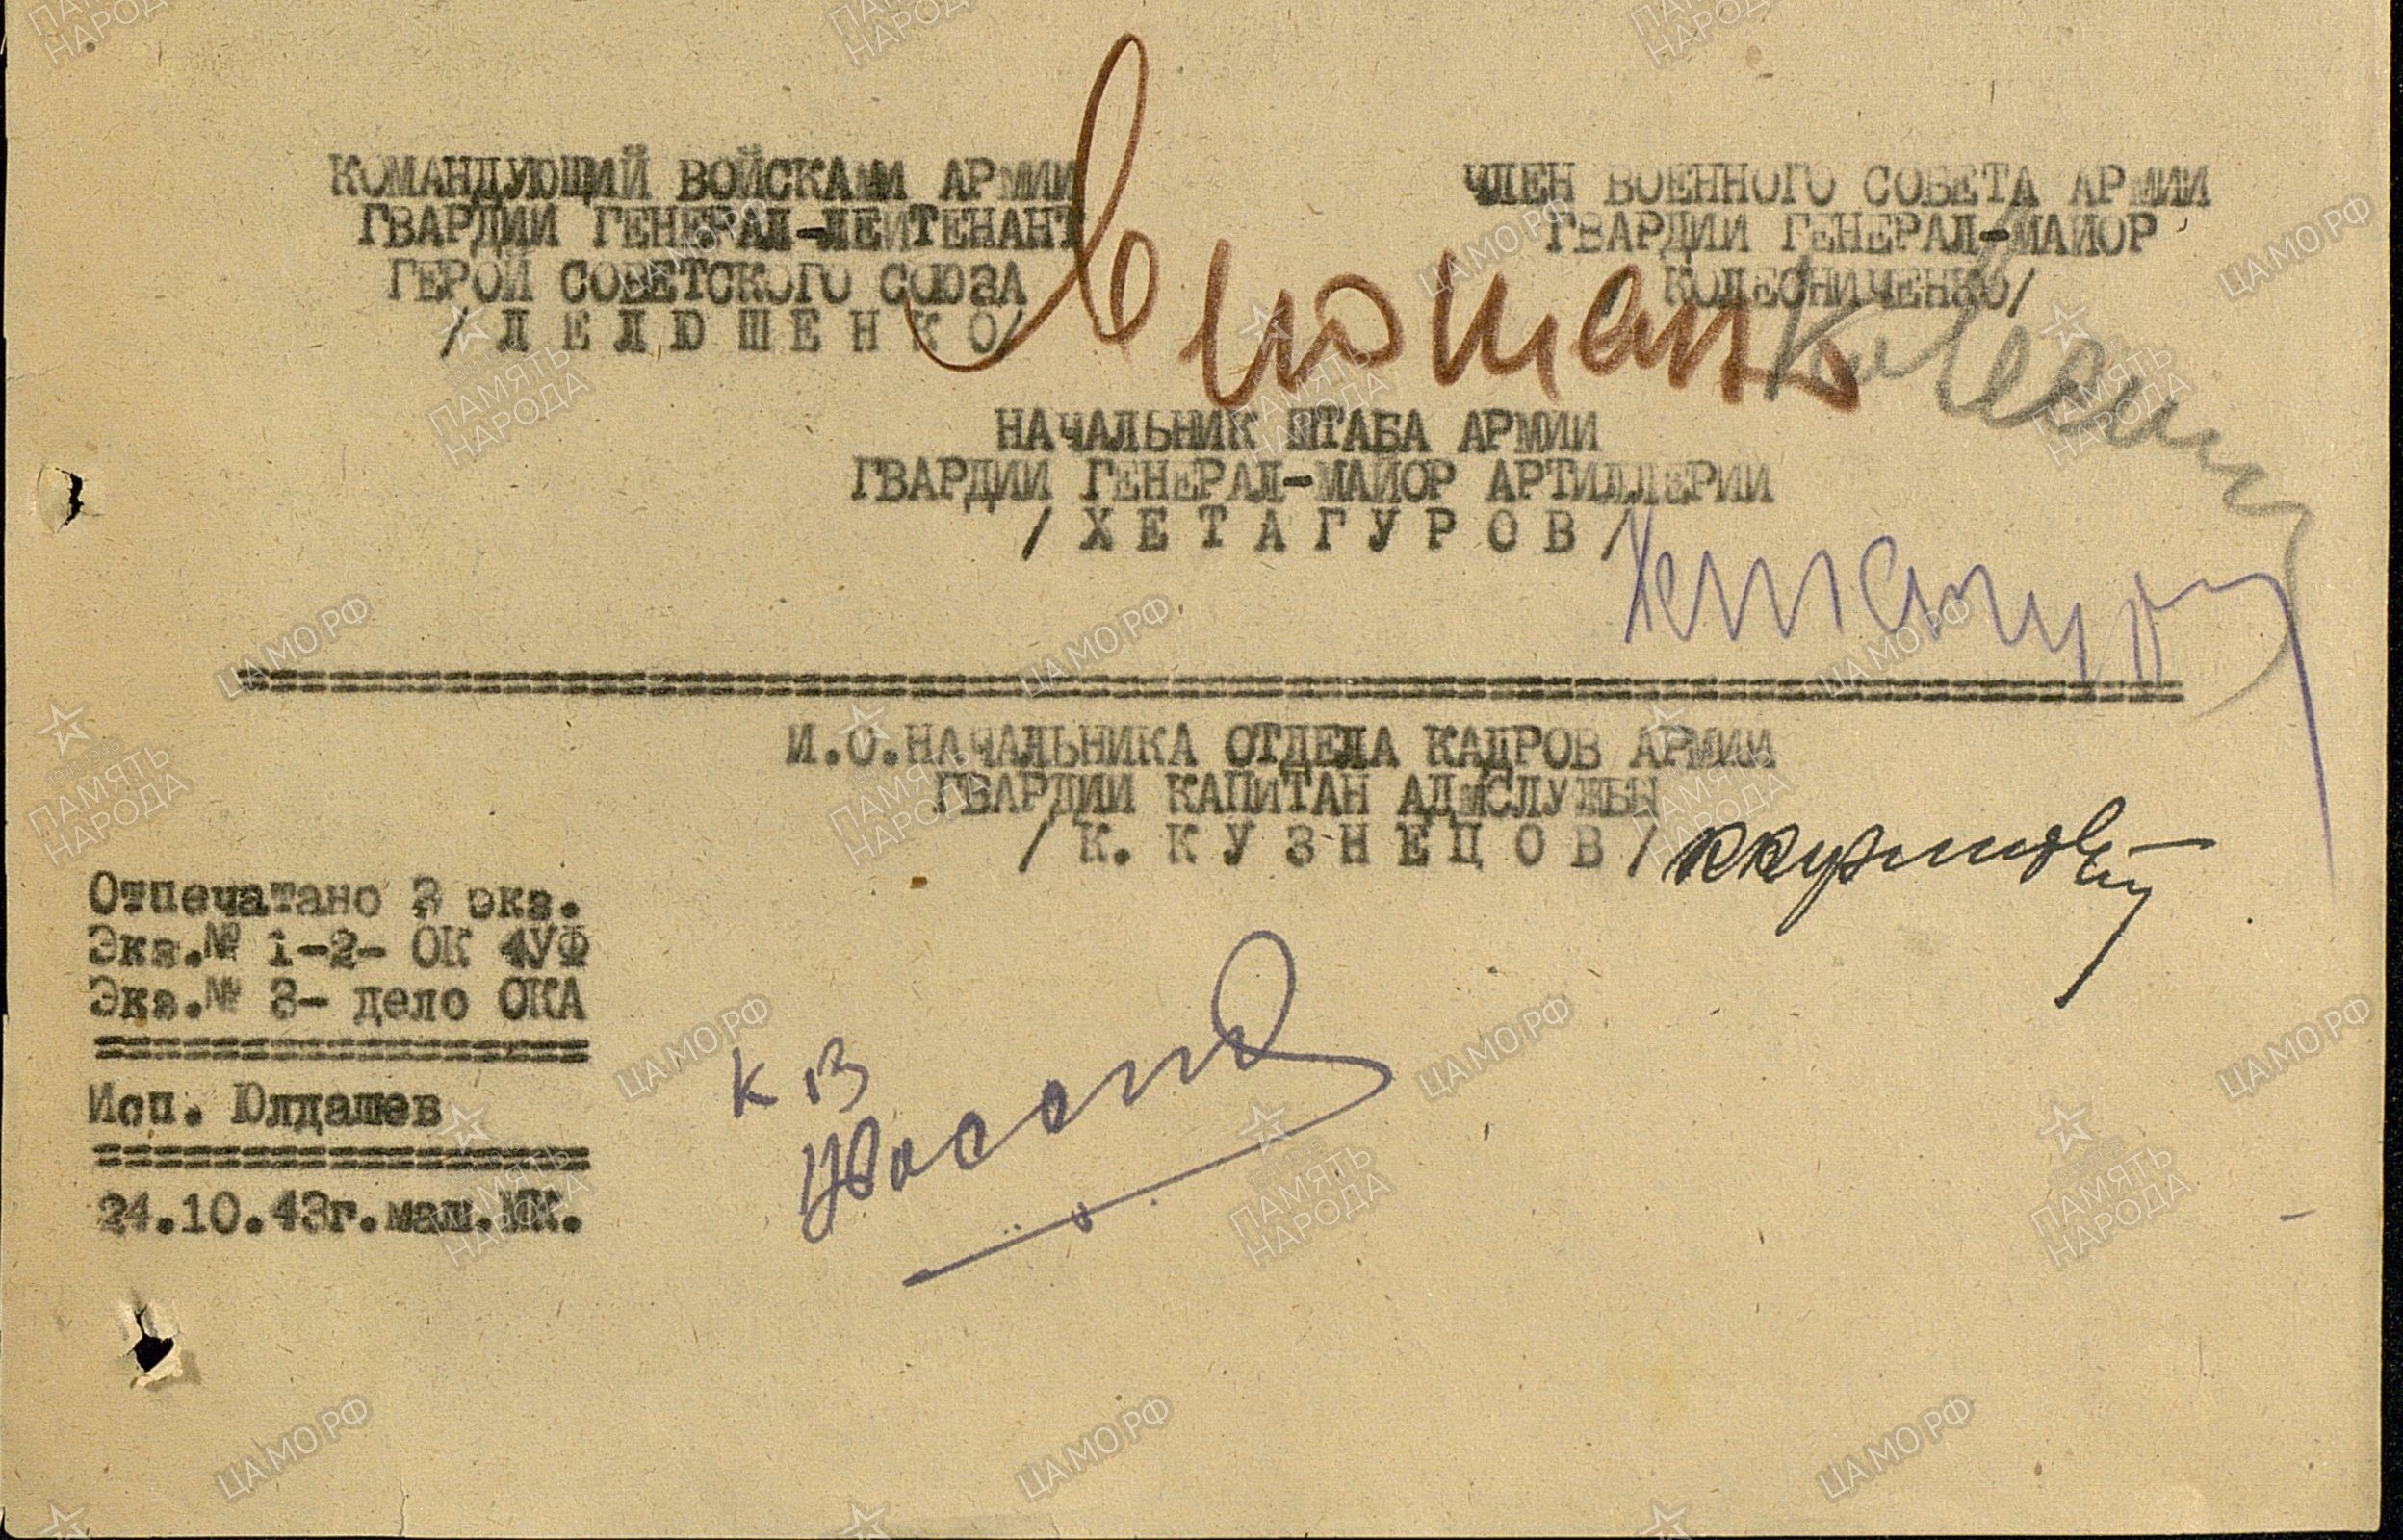 КОМАНДУЮЩИЙ ВОЙСКАМИ АРМИИ
ГВАРДИИ ГЕНЕРАЛ-ЛЕЙТЕНАНТ
ГЕРОЙ СОВЕТСКОГО СОЮЗА
/ Л Е Л Ю Ш Е Н К О/
ЧЛЕН ВОЕННОГО СОВЕТА АРМИИ
ГВАРДИИ ГЕНЕРАЛ-МАЙОР
КОЛЕСНИЧЕНКО/
НАЧАЛЬНИК ШТАБА АРМИИ
ГВАРДИИ ГЕНЕРАЛ-МАЙОР АРТИЛЛЕРИИ
/ Х Е Т А Г У Р О В /
И.О.НАЧАЛЬНИКА ОТДЕЛА КАДРОВ АРМИИ
ГВАРДИИ КАПИТАН АДМСЛУЖБЫ
/ К. К У З Н Е Ц О В /
Отпечатано 3 экз.
Экз.№ 1-2- ОК 4УФ
Экз.№ 3- дело ОКА
Исп. Юлдашев
24.10.43г.маш.МК.
ПАМЯТЬ НАРОДА
ЦАМО.РФ